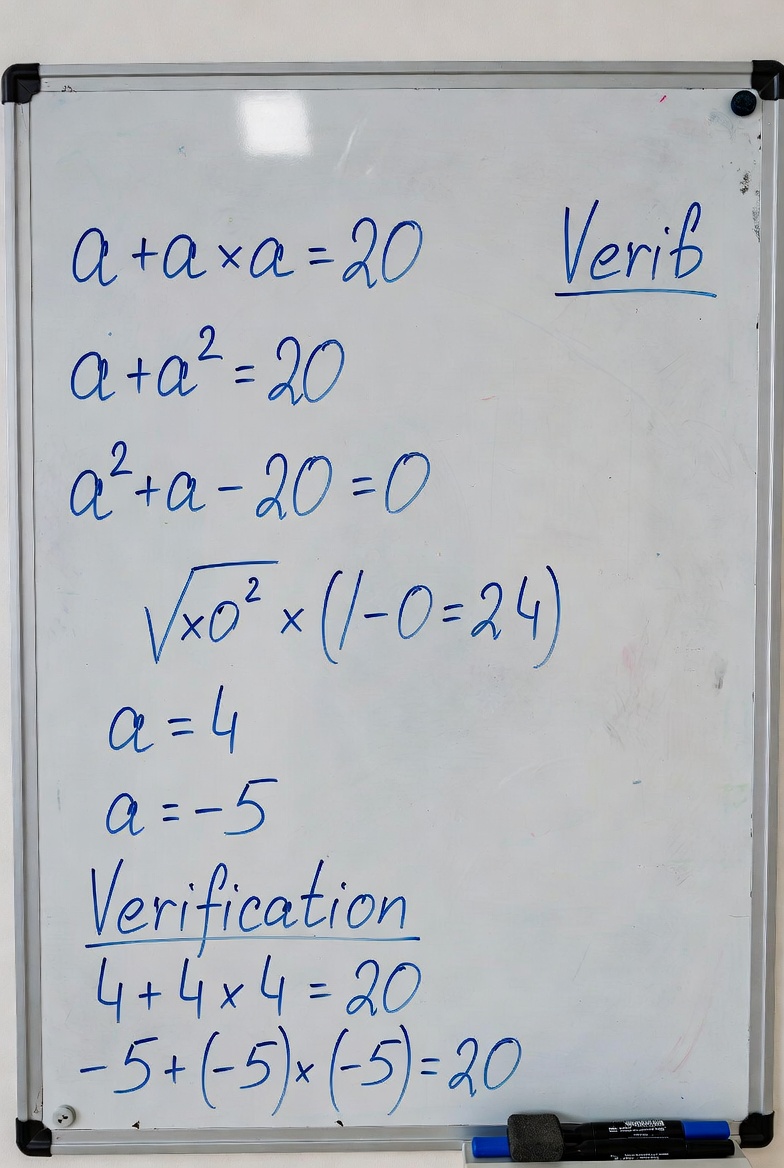 a + a × a = 20
Verif
a + a² = 20
a² + a - 20 = 0
√×0² × (1 - 0 = 24)
a = 4
a = -5
Verification
4 + 4 × 4 = 20
-5 + (-5) × (-5) = 20